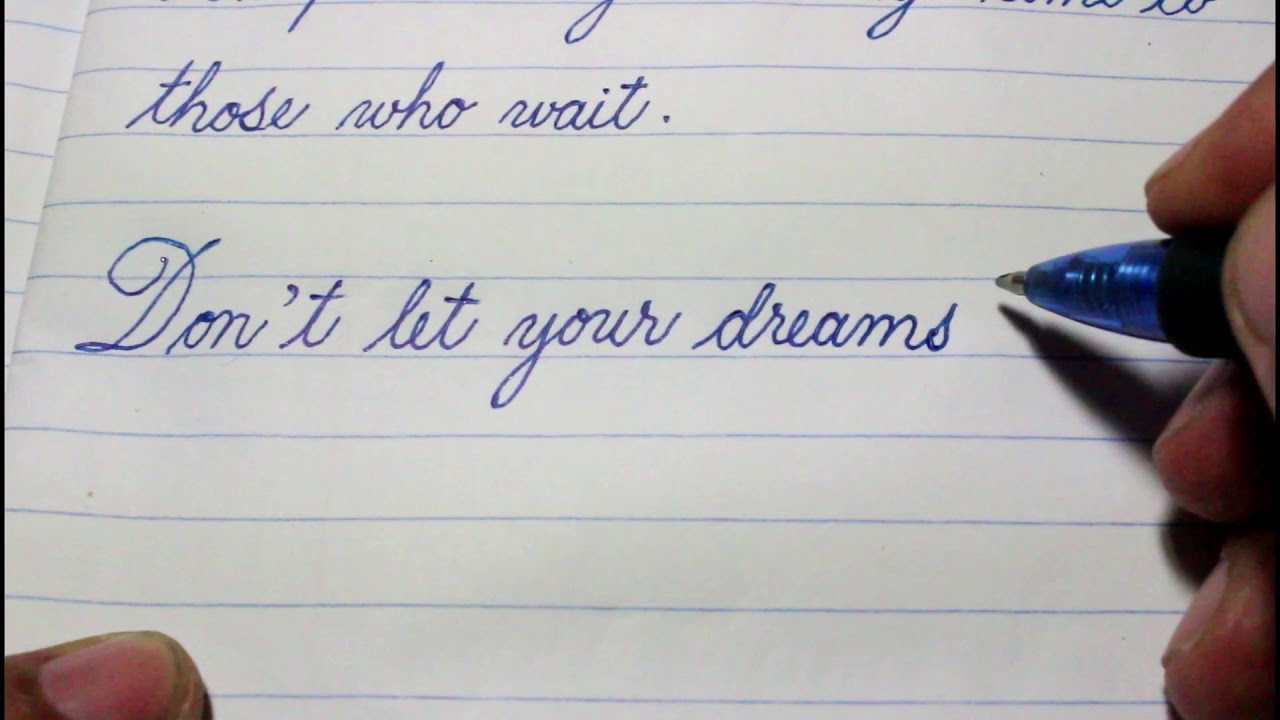 to
those who wait.
Don't let your dreams